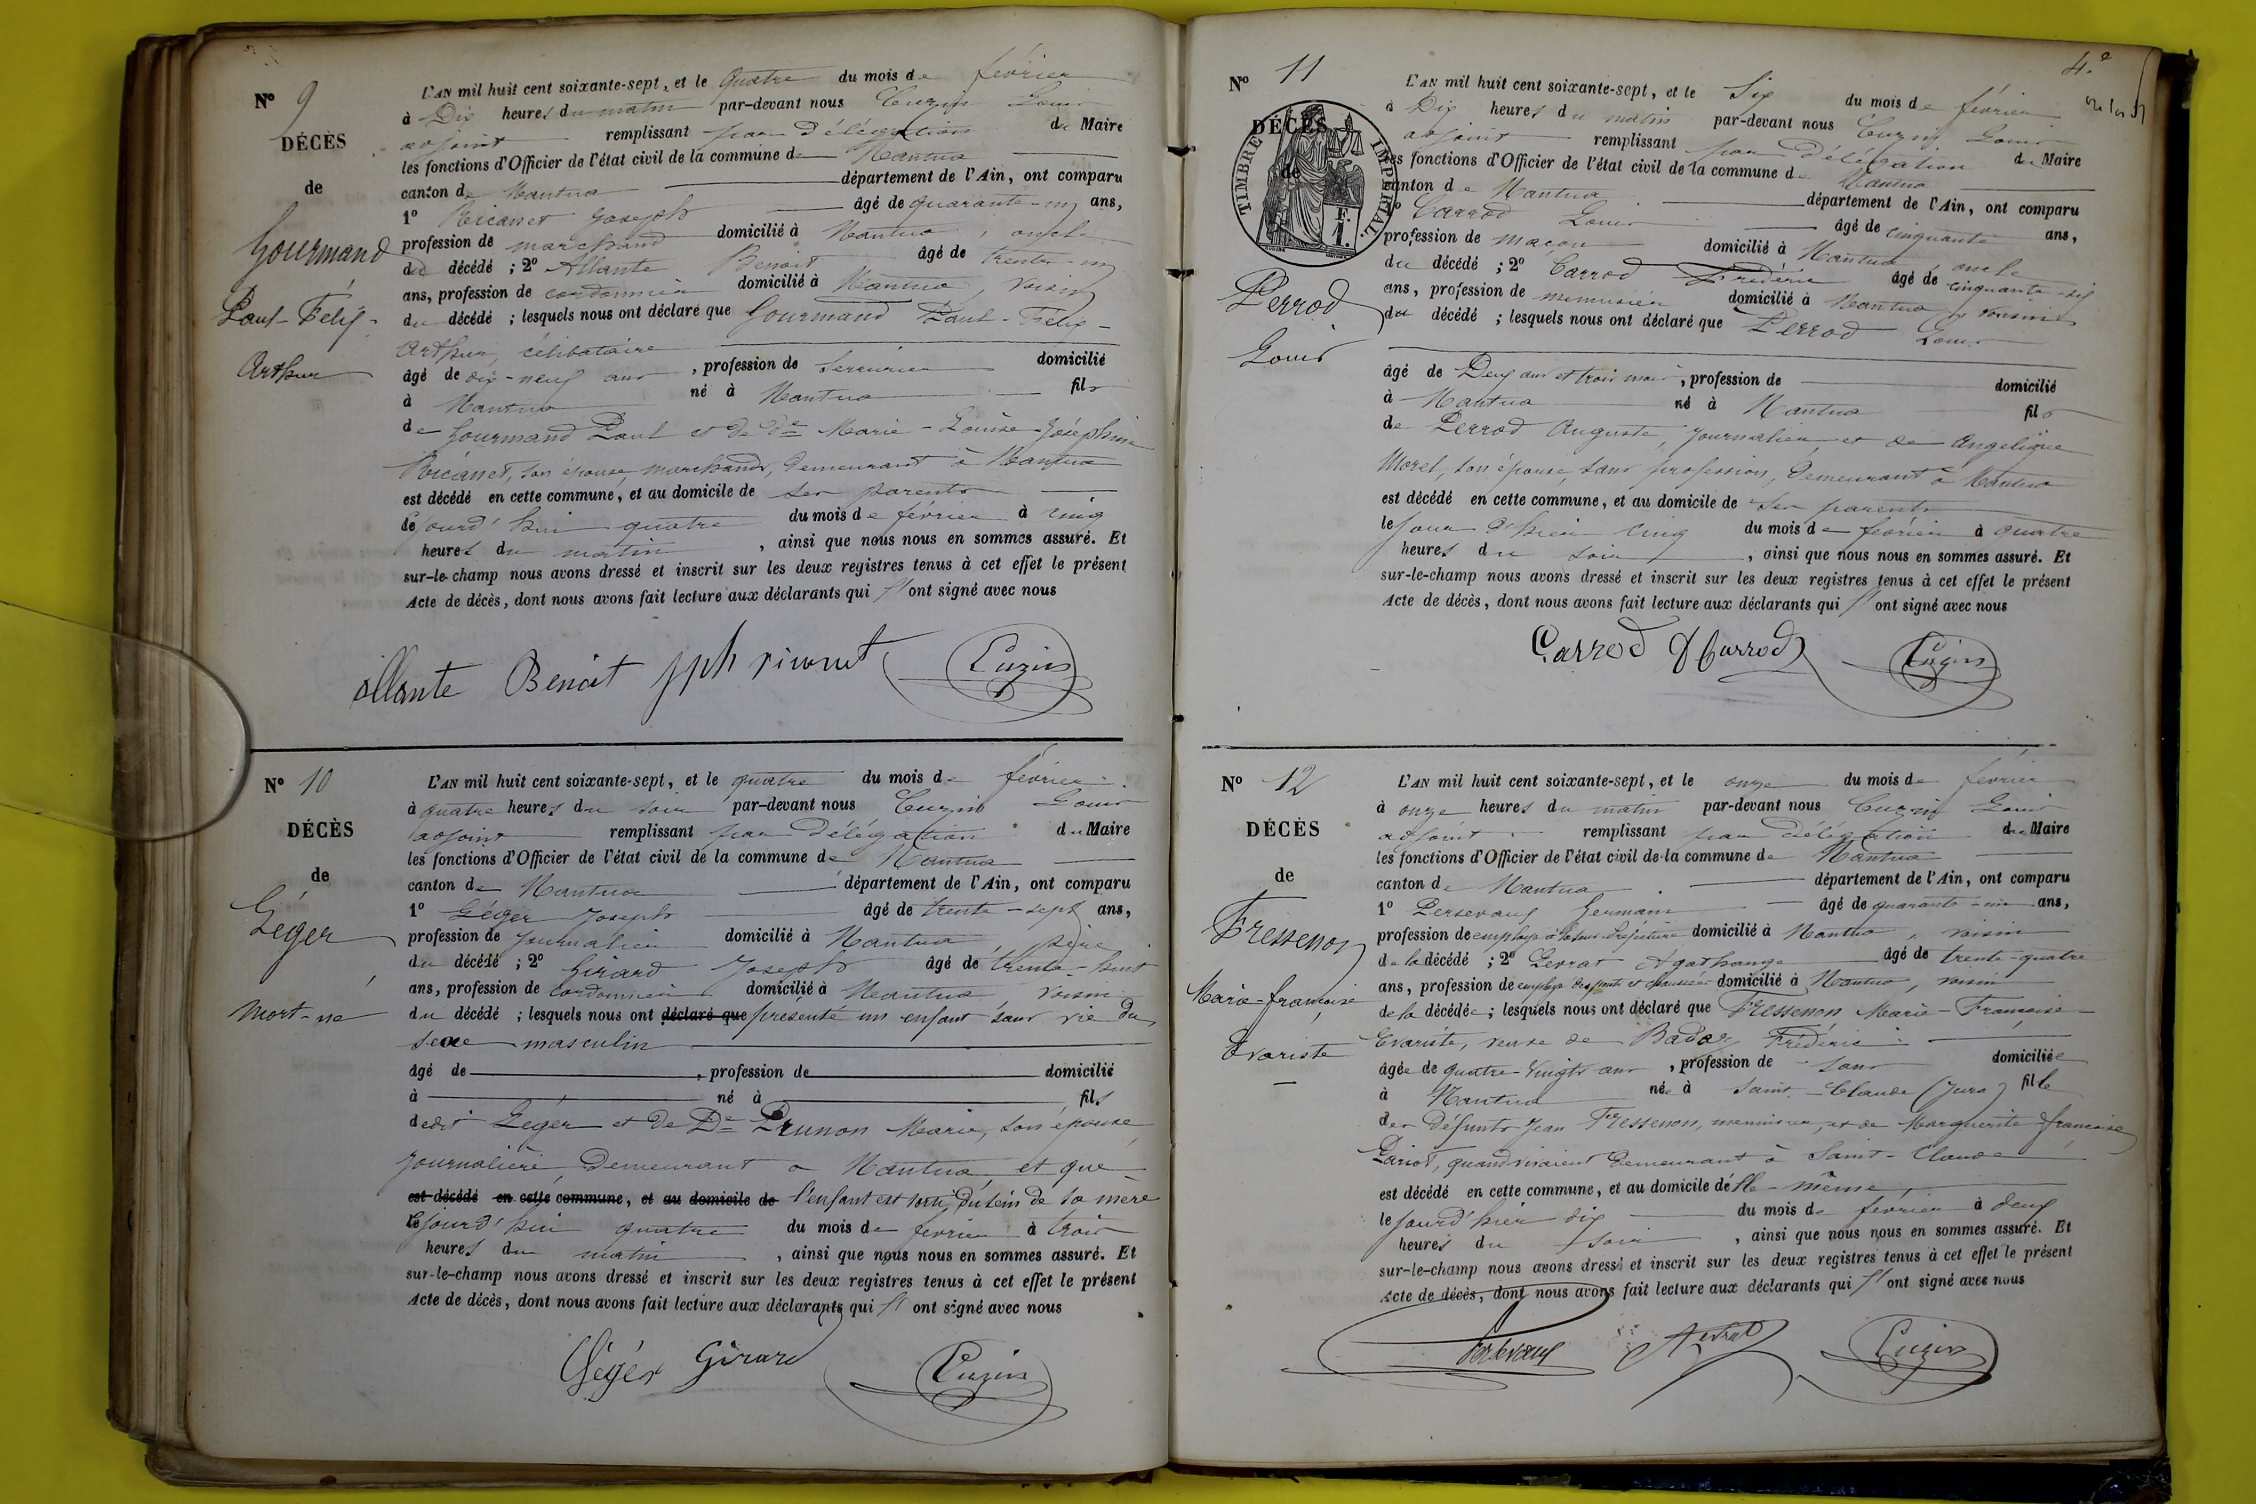 N° 9
DÉCÈS
de
Gourmand
Paul-Félix-
Arthur
L'AN mil huit cent soixante-sept, et le quatre du mois de février
à Dix heures du matin par-devant nous Cuzin Louis
adjoint remplissant par Délégation du Maire
les fonctions d'Officier de l'état civil de la commune de Nantua
canton de Nantua département de l'Ain, ont comparu
1° Ricanet Joseph âgé de quarante-un ans,
profession de marchand domicilié à Nantua, oncle
du décédé ; 2° Allante Benoit âgé de trente-un
ans, profession de cordonnier domicilié à Nantua, voisin
du décédé ; lesquels nous ont déclaré que Gourmand Paul-Félix-
Arthur, célibataire
âgé de dix-neuf ans, profession de serrurier domicilié
à Nantua né à Nantua fils
de Gourmand Paul et de De Marie-Louise-Joséphine
Ricanet, son épouse, marchands, demeurant à Nantua
est décédé en cette commune, et au domicile de ses parents
le jourd'hui quatre du mois de février à cinq
heures du matin, ainsi que nous nous en sommes assuré. Et
sur-le-champ nous avons dressé et inscrit sur les deux registres tenus à cet effet le présent
Acte de décès, dont nous avons fait lecture aux déclarants qui l'ont signé avec nous
allante Benoit Jph ricanet Cuzin
N° 10
DÉCÈS
de
Léger
Mort-né
L'AN mil huit cent soixante-sept, et le quatre du mois de février
à quatre heures du soir par-devant nous Cuzin Louis
adjoint remplissant par Délégation du Maire
les fonctions d'Officier de l'état civil de la commune de Nantua
canton de Nantua département de l'Ain, ont comparu
1° Léger Joseph âgé de trente-sept ans,
profession de journalier domicilié à Nantua, père
du décédé ; 2° Girard Joseph âgé de trente-huit
ans, profession de cordonnier domicilié à Nantua, voisin
du décédé ; lesquels nous ont déclaré que présenté un enfant sans vie du
sexe masculin
âgé de , profession de domicilié
à né à fils
dedit Léger et de De Prunon Marie, son épouse,
journalière demeurant à Nantua, et que
est décédé en cette commune, et au domicile de l'enfant est sorti du sein de sa mère
le jourd'hui quatre du mois de février à trois
heures du matin, ainsi que nous nous en sommes assuré. Et
sur-le-champ nous avons dressé et inscrit sur les deux registres tenus à cet effet le présent
Acte de décès, dont nous avons fait lecture aux déclarants qui l'ont signé avec nous
Léger Girard Cuzin
4.e
N° 11
DÉCÈS
de
TIMBRE IMPÉRIAL
Perrod
Louis
L'AN mil huit cent soixante-sept, et le Six du mois de février
à Dix heures du matin par-devant nous Cuzin Louis
adjoint remplissant par Délégation du Maire
les fonctions d'Officier de l'état civil de la commune de Nantua
canton de Nantua département de l'Ain, ont comparu
1° Carrod Louis âgé de cinquante ans,
profession de maçon domicilié à Nantua, oncle
du décédé ; 2° Carrod Frédéric âgé de cinquante-six
ans, profession de menuisier domicilié à Nantua, voisin
du décédé ; lesquels nous ont déclaré que Perrod Louis
âgé de Deux ans et trois mois, profession de domicilié
à Nantua né à Nantua fils
de Perrod Auguste, journalier et de Angelique
Morel, son épouse, sans profession, demeurant à Nantua
est décédé en cette commune, et au domicile de ses parents
le jour d'hier cinq du mois de février à quatre
heures du soir, ainsi que nous nous en sommes assuré. Et
sur-le-champ nous avons dressé et inscrit sur les deux registres tenus à cet effet le présent
Acte de décès, dont nous avons fait lecture aux déclarants qui l'ont signé avec nous
Carrod Carrod Cuzin
N° 12
DÉCÈS
de
Fressenon
Marie-françoise
Évariste
L'AN mil huit cent soixante-sept, et le onze du mois de février
à onze heures du matin par-devant nous Cuzin Louis
adjoint remplissant par délégation du Maire
les fonctions d'Officier de l'état civil de la commune de Nantua
canton de Nantua département de l'Ain, ont comparu
1° Persevaux Germain âgé de quarante-un ans,
profession de employé à la sous-Préfecture domicilié à Nantua, voisin
de la décédé ; 2° Perrat Agathange âgé de trente-quatre
ans, profession de employé des ponts et chaussées domicilié à Nantua, voisin
de la décédée ; lesquels nous ont déclaré que Fressenon Marie-Françoise
Évariste, veuve de Frédéric
âgée de quatre-vingts ans, profession de sans domiciliée
à Nantua née à Saint-Claude (Jura) fille
des défunts Jean Fressenon, menuisier, et de Marguerite-françoise
quand vivaient demeurant à Saint-Claude
est décédé en cette commune, et au domicile d'elle-même
le jourd'hier dix du mois de février à deux
heures du soir, ainsi que nous nous en sommes assuré. Et
sur-le-champ nous avons dressé et inscrit sur les deux registres tenus à cet effet le présent
Acte de décès, dont nous avons fait lecture aux déclarants qui l'ont signé avec nous
Persevaux Perrat Cuzin